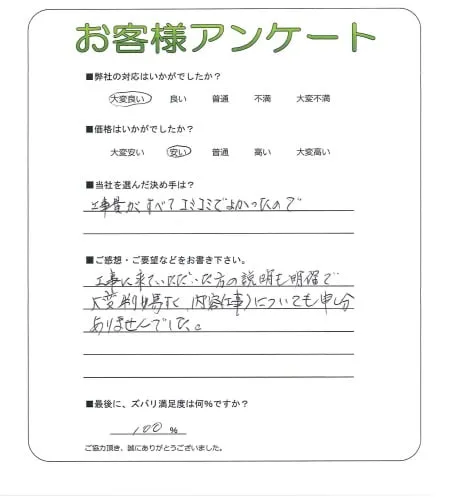 お客様アンケート
■弊社の対応はいかがでしたか？
大変良い 良い 普通 不満 大変不満
■価格はいかがでしたか？
大変安い 安い 普通 高い 大変高い
■当社を選んだ決め手は？
工事費がすべてコミコミでよかったので
■ご感想・ご要望などをお書き下さい。
工事に来ていただいた方の説明も明確で
大変判り易く、内容(仕事)についても申し分
ありませんでした。
■最後に、ズバリ満足度は何%ですか？
100 %
ご協力頂き、誠にありがとうございました。